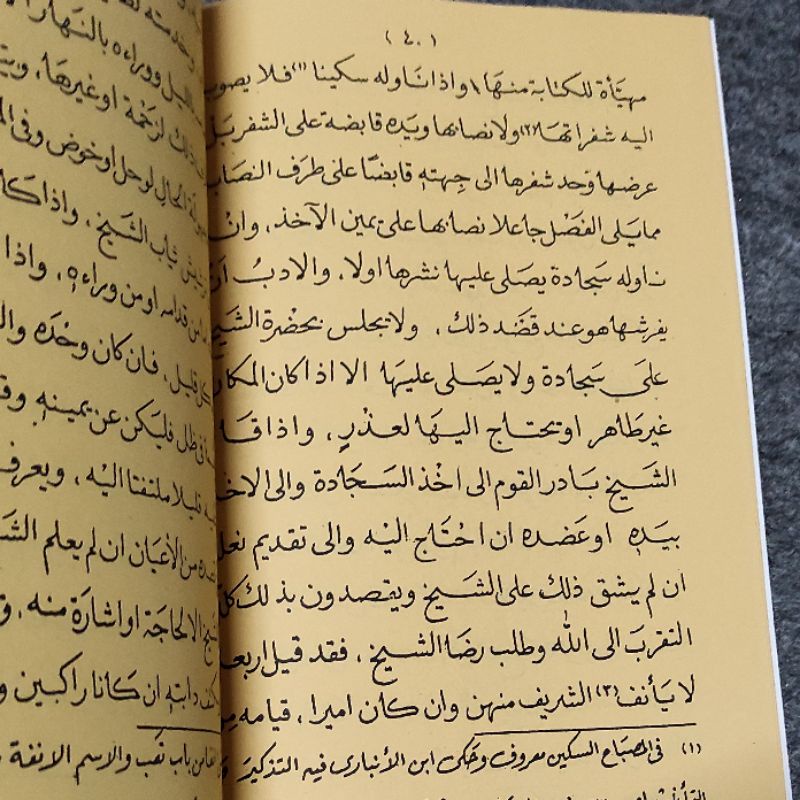 (٤٠)
مهيأة للكتابة منها، واذا ناوله سكينا (١) فلا يصوب
اليه شفراتها (٢) ولا نصابها ويده قابضة على الشفر بل
عرضها وحد شفرها الى جهته قابضا على طرف النصاب
مما يلى الفصل جاعلا نصابها على يمين الآخذ، وان
ناوله سجادة يصلى عليها نشرها اولا، والادب ان
يفرشها هو عند قصد ذلك، ولا يجلس بحضرة الشيخ
على سجادة ولا يصلى عليها الا اذا كان المكان
غير طاهر او يحتاج اليها لعذر، واذا قا
الشيخ بادر القوم الى اخذ السجادة والى الاخذ
بيده او عضده ان احتاج اليه والى تقديم نعل
ان لم يشق ذلك على الشيخ ويقصدون بذلك كل
التقرب الى الله وطلب رضا الشيخ، فقد قيل اربعة
لا يأنف (٣) الشريف منهن وان كان اميرا، قيامه من
(١) فى المصباح السكين معروف وحكى ابن الأنبارى فيه التذكير و
والنهار
الليل ووراءه بالنهار
ذلك لزحمة او غيرها، ويت
الحال لوحل او خوض وفى
ثياب الشيخ، واذا كا
من قدامه او من وراءه، واذا
كل قليل، فان كان وحده وال
فى ظل فليكن عن يمينه وق
قليلا ملتفتا اليه، ويعرف
من الأعيان ان لم يعلم الش
الا لحاجة او اشارة منه، و
دابته ان كانا راكبين و
من باب تعب والاسم الانفة